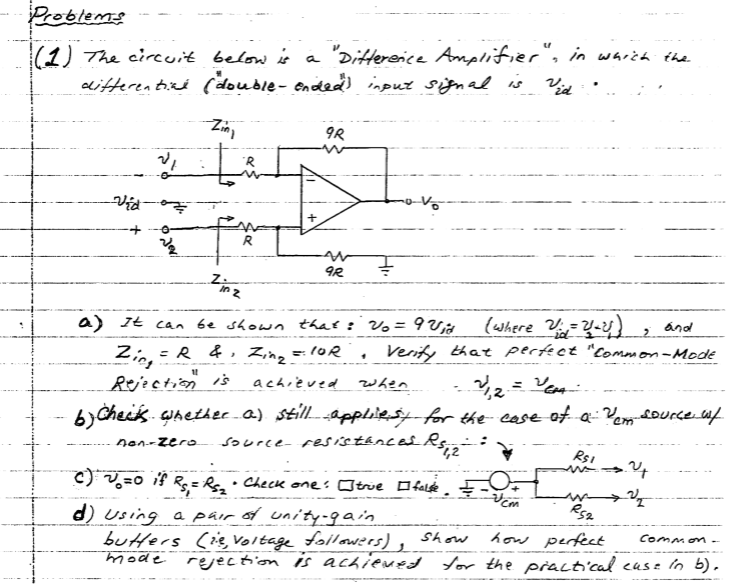 Problems
(1) The circuit below is a "Difference Amplifier", in which the
differential ("double-ended") input signal is Vid .
Zin1
9R
V1
R
-
Vid
-
+
Vo
+
V2
R
9R
Zin2
a) It can be shown that : Vo = 9 Vid (where Vid = V2-V1) , and
Zin1 = R & , Zin2 = 10R . Verify that perfect "Common-Mode
Rejection" is achieved when V1,2 = Vcm .
b) Check whether a) still applies, for the case of a Vcm source w/
non-zero source resistances Rs1,2 :
RS1
V1
c) Vo=0 if Rs1 = Rs2 . Check one : □ true □ false .
- +
Vcm
V2
RS2
d) Using a pair of unity-gain
buffers (ie, voltage followers) , show how perfect common-
mode rejection is achieved for the practical case in b).